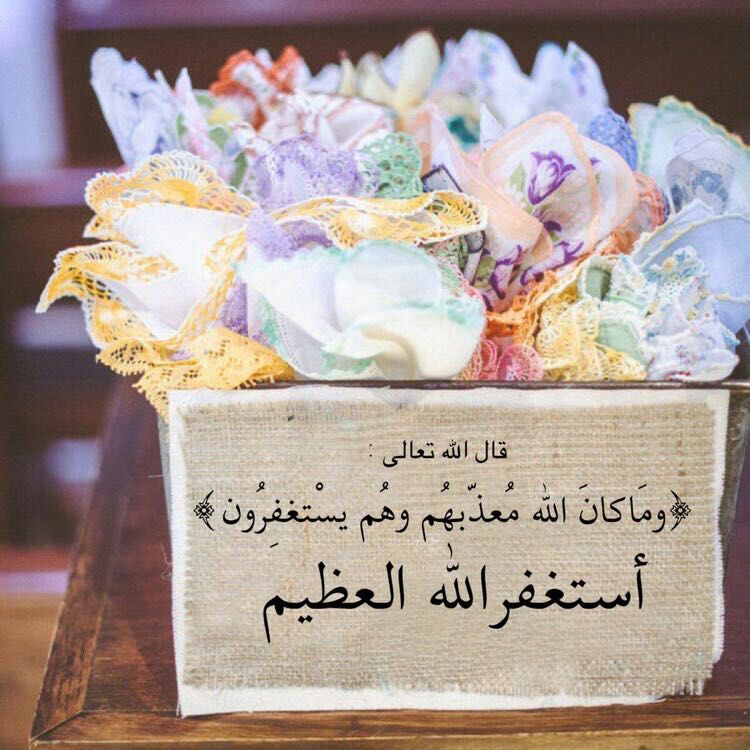 قال الله تعالى :
﴿ومَاكانَ الله مُعذّبهُم وهُم يسْتغفِرُون﴾
أستغفرالله العظيم